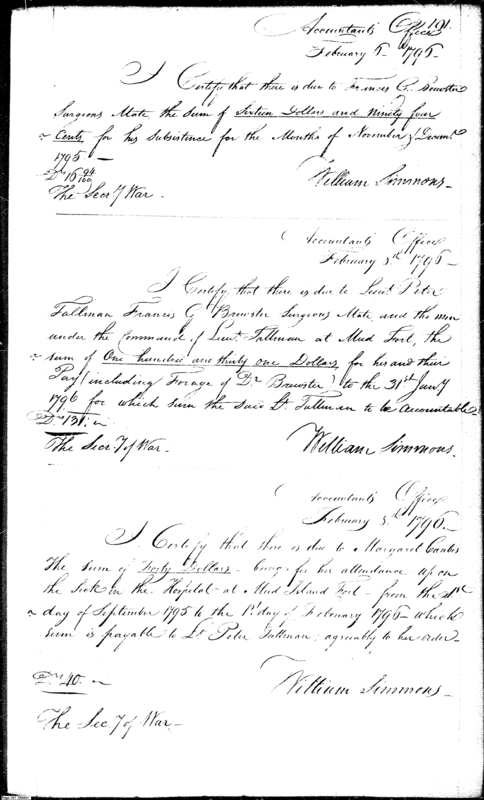 191.
Accountants Office
February 5th 1796-
I Certify that there is due to Francis G. Brewster
Surgeons Mate the sum of Sixteen Dollars and Ninety four
Cents for his Subsistence for the Months of November & Decemr
1795 -
Drs 16 94/100
William Simmons-
The Secry War.
Accountants Office
February 5th 1796-
I Certify that there is due to Lieut. Peter
Tallman Francis G Brewster Surgeons Mate and the men
under the Command of Lieut. Tallman at Mud Fort, the
sum of One hundred and thirty one Dollars for his and their
Pay (including Forage of Dr Brewster) to the 31st Jany
1796 for which sum the said Lt Tallman to be accountable
Drs 131.
The Secry of War-
William Simmons.
Accountants Office
February 5th 1796-
I Certify that there is due to Margaret
The Sum of Forty Dollars - being for her attendance upon
the Sick in the Hospital at Mud Island Fort - from the 1st
day of September 1795 to the 1st day of February 1796 - which
Sum is payable to Lt Peter Tallman, agreably to her order-
Drs 40.
William Simmons-
The Secy of War-